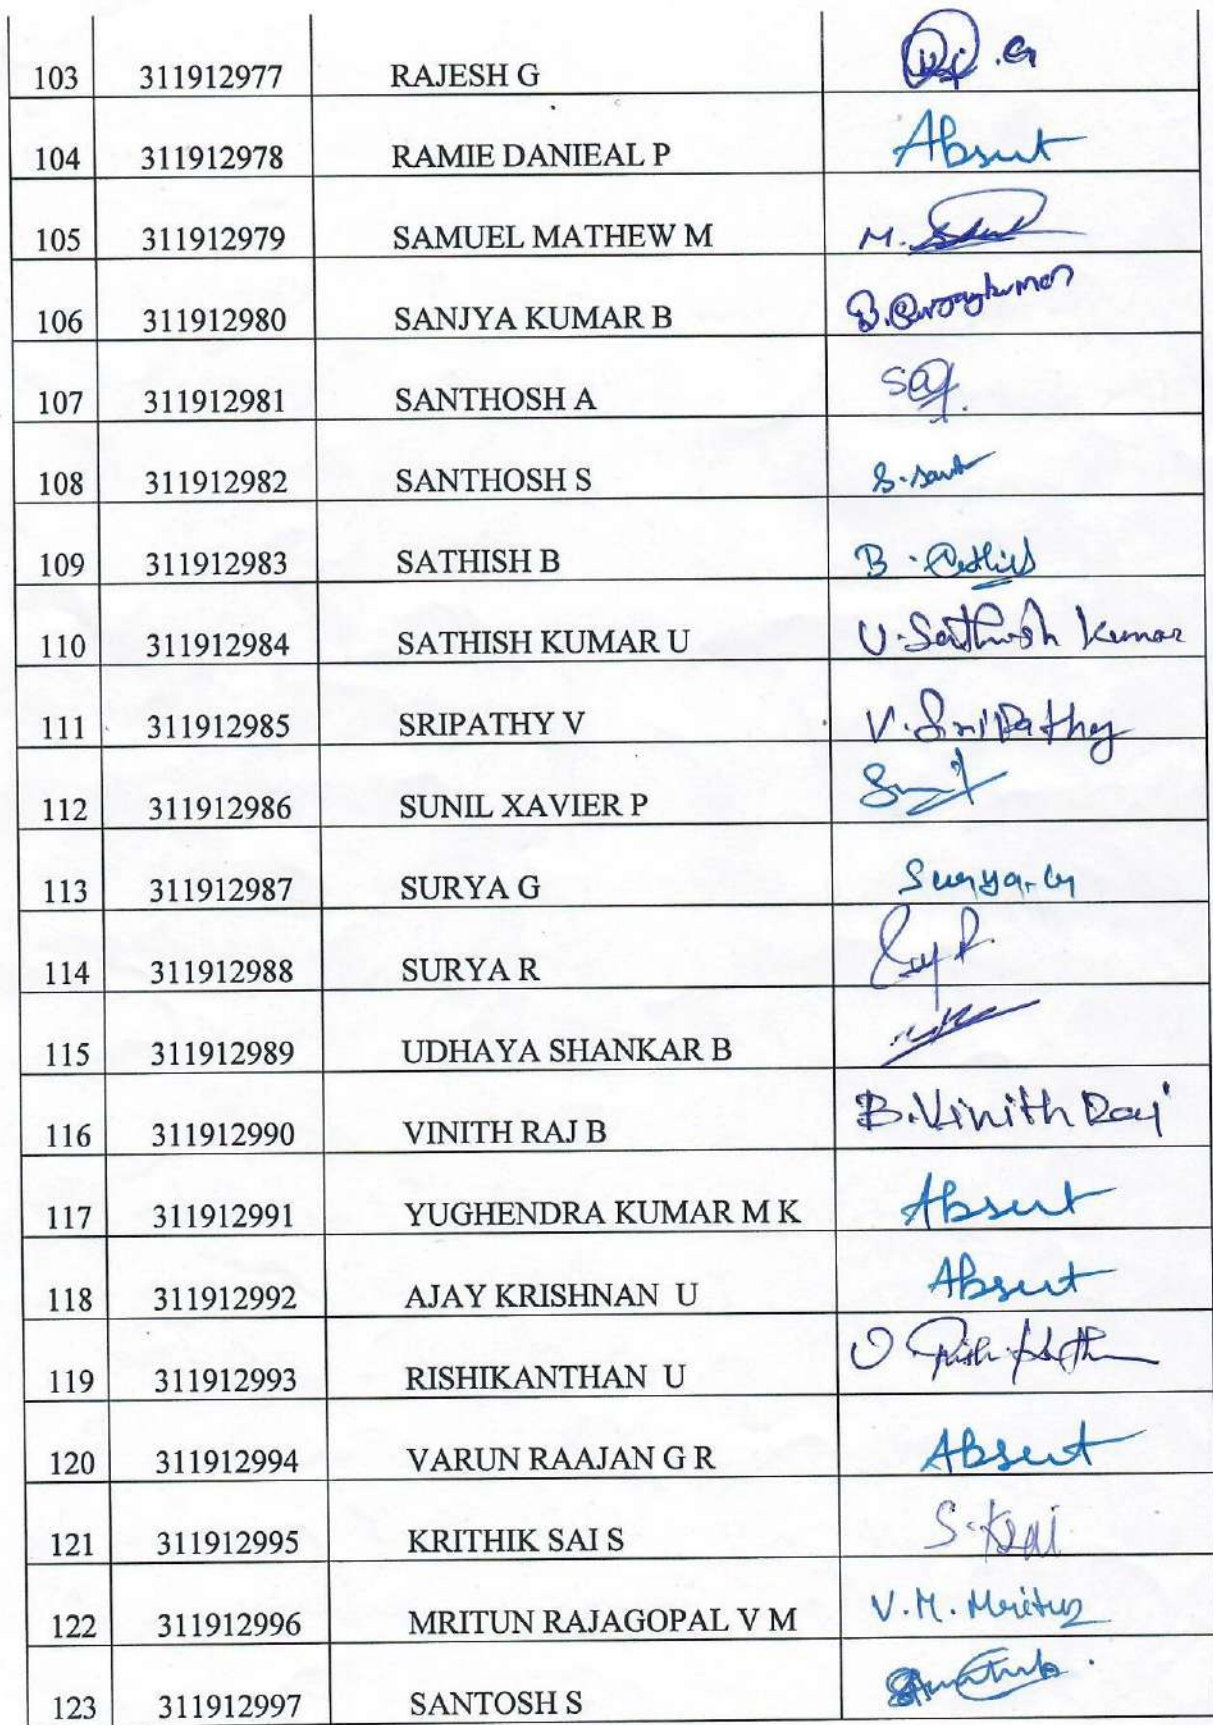 103 311912977 RAJESH G .G
104 311912978 RAMIE DANIEAL P Absent
105 311912979 SAMUEL MATHEW M M.
106 311912980 SANJYA KUMAR B B.
107 311912981 SANTHOSH A
108 311912982 SANTHOSH S S.
109 311912983 SATHISH B B.
110 311912984 SATHISH KUMAR U U. Sathish Kumar
111 311912985 SRIPATHY V V. Sripathy
112 311912986 SUNIL XAVIER P
113 311912987 SURYA G Surya.G
114 311912988 SURYA R
115 311912989 UDHAYA SHANKAR B
116 311912990 VINITH RAJ B B.Vinith Raj
117 311912991 YUGHENDRA KUMAR M K Absent
118 311912992 AJAY KRISHNAN U Absent
119 311912993 RISHIKANTHAN U
120 311912994 VARUN RAAJAN G R Absent
121 311912995 KRITHIK SAI S
122 311912996 MRITUN RAJAGOPAL V M V.M. Mritun
123 311912997 SANTOSH S